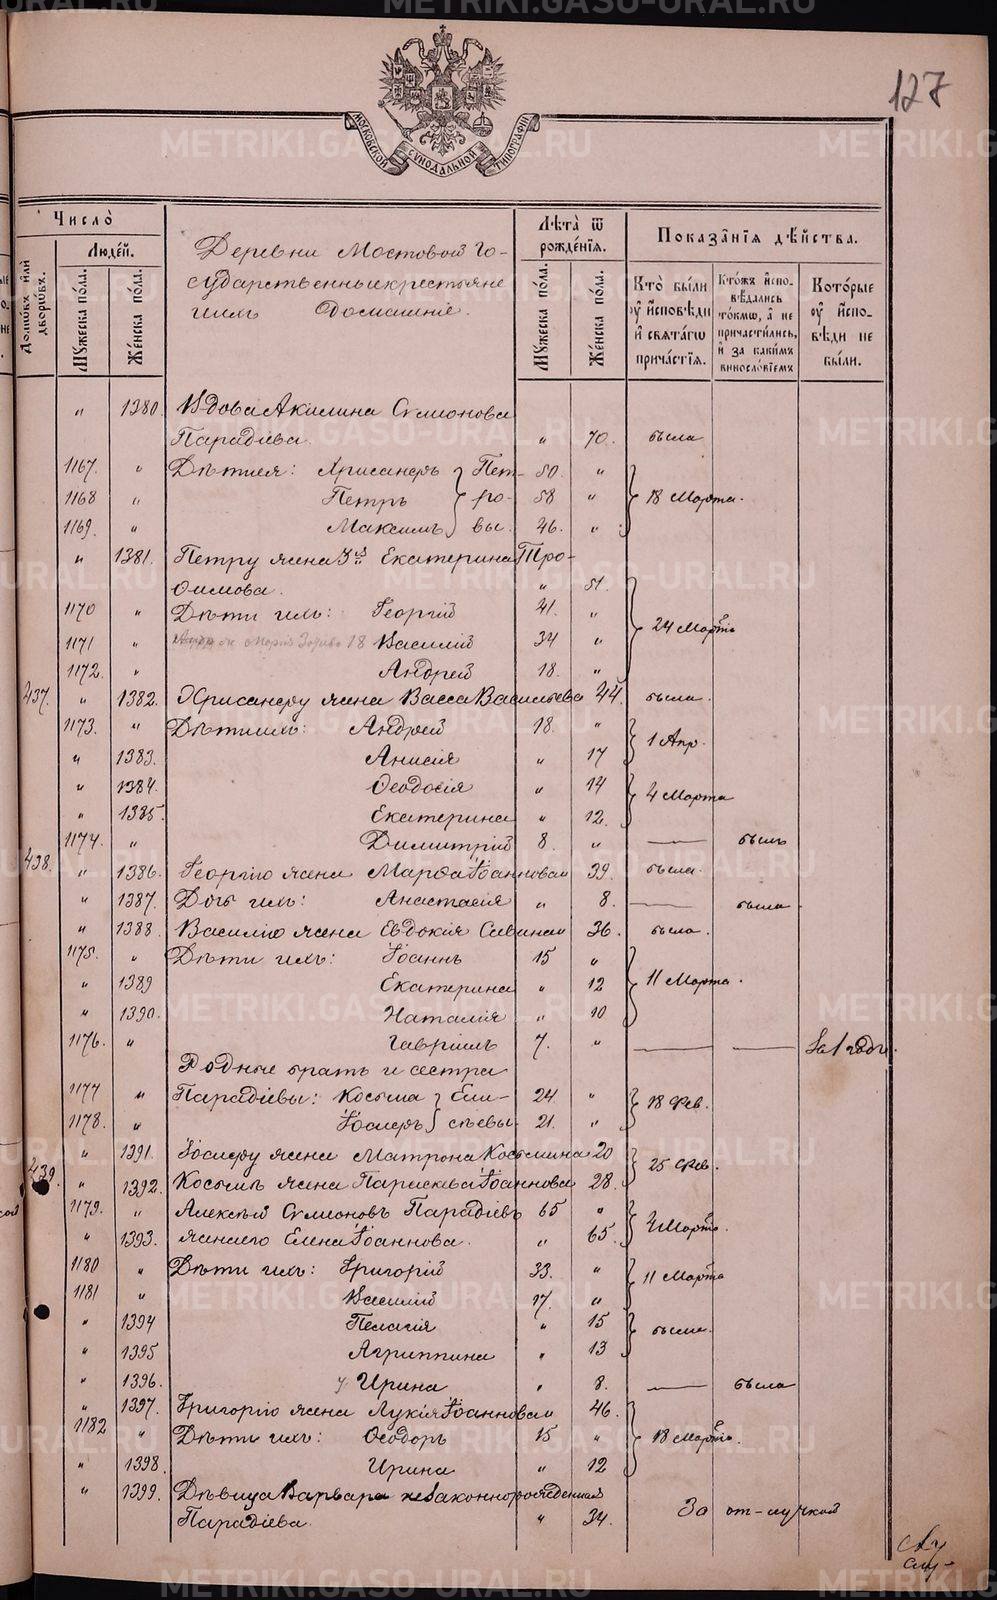 127
МОСКОВСКОЙ СѴНОДАЛЬНОЙ ТИПОГРАФІИ
Число̀
Домѡвъ и҆лѝ дворѡвъ.
Люде́й.
Мꙋжеска по́ла.
Же́нска по́ла.
Деревни Мостовой Го-
сударственные крестьяне
и ихъ Домашніе.
Лѣ́та ѿ рожде́нїѧ.
Мꙋжеска по́ла.
Же́нска по́ла.
Показа̑нїѧ дѣ́йства.
Кто̀ бы́ли оу҆ и҆сповѣди и҆ свѧта́гѡ прича́стїѧ.
Кто́жъ и҆спо-вѣдались то́кмѡ, а҆ не причастились, и҆ за каки́мъ винословїемъ
Кото́рые оу҆ и҆спо-вѣди не бы́ли.
" 1380. Вдова Акилина Симіонова
Парадіева. " 70. была
1167. " Дѣти ея: Хрисанѳъ } Пет- 50. "
1168 " Петръ } ро- 58 " } 18 Марта.
1169. " Максимъ } вы. 46. "
" 1381. Петру жена 3я Екатерина Тро-
ѳимова. " 51.
1170 " Дѣти ихъ: Георгій 41. " } 24 Марта
1171 " Василій 34 "
1172. " Андрей 18. "
437. " 1382. Хрисанѳу жена Васса Васильева 44. была.
1173. " Дѣти ихъ: Андрей 18. " } 1 Апр.
" 1383. Анисія " 17
" 1384. Ѳеодосія " 14 } 4 Марта
" 1385. Екатерина " 12.
1174. " Димитрій 8. " — былъ
438. " 1386. Георгію жена Марѳа Іоаннова 39. была.
" 1387. Дочь ихъ: Анастасія " 8. — была
" 1388. Василію жена Евдокія Савина 36. была.
1175. " Дѣти ихъ: Іоаннъ 15 "
" 1389 Екатерина " 12 } 11 Марта.
" 1390. Наталія " 10
1176. " Гавріилъ 7. " — —
Родные братъ и сестра
1177 " Парадіевы: Косьма } Ели- 24 " } 18 Фев.
1178. " Іосифъ } сѣевы. 21. "
" 1391. Іосифу жена Матрона Косьмина 20 } 25 Фев.
439. " 1392. Косьмѣ жена Параскева Іоаннова 28.
1179. " Алексѣй Симіоновъ Парадіевъ 65 " } Марта.
" 1393. Жена его Елена Іоаннова. " 65.
1180 " Дѣти ихъ: Григорій 33. " } 11 Марта
1181 " Василій 17. "
" 1394 Пелагія " 15 } были.
" 1395 Агриппина " 13
" 1396. Ирина " 8. — была
" 1397. Григорію жена Лукія Іоаннова 46.
1182 " Дѣти ихъ: Ѳеодоръ 15 " } 18 Марта.
" 1398. Ирина " 12
" 1399. Дѣвица Варвара незаконнорожденная
Парадіева. " 34. За от-лучкой
METRIKI.GASO-URAL.RU